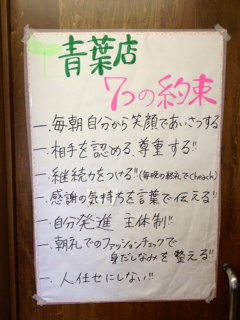 青葉店
7つの約束
一. 毎朝自分から笑顔であいさつする
一. 相手を認める、尊重する!!
一. 継続力をつける!!(毎晩の終礼でCheack)
一. 感謝の気持ちを言葉で伝える!!
一. 自分発進 主体制!!
一. 朝礼でのファッションチェックで
身だしなみを整える!!
一. 人任せにしない!!